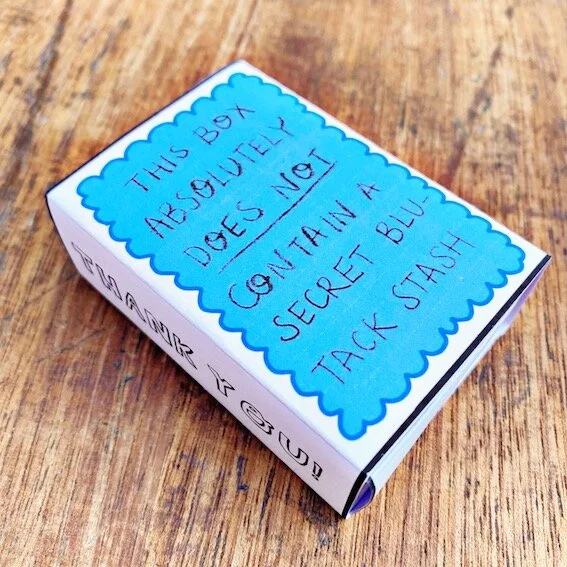 THIS BOX
ABSOLUTELY
DOES NOT
CONTAIN A
SECRET BLU-
TACK STASH
THANK YOU!